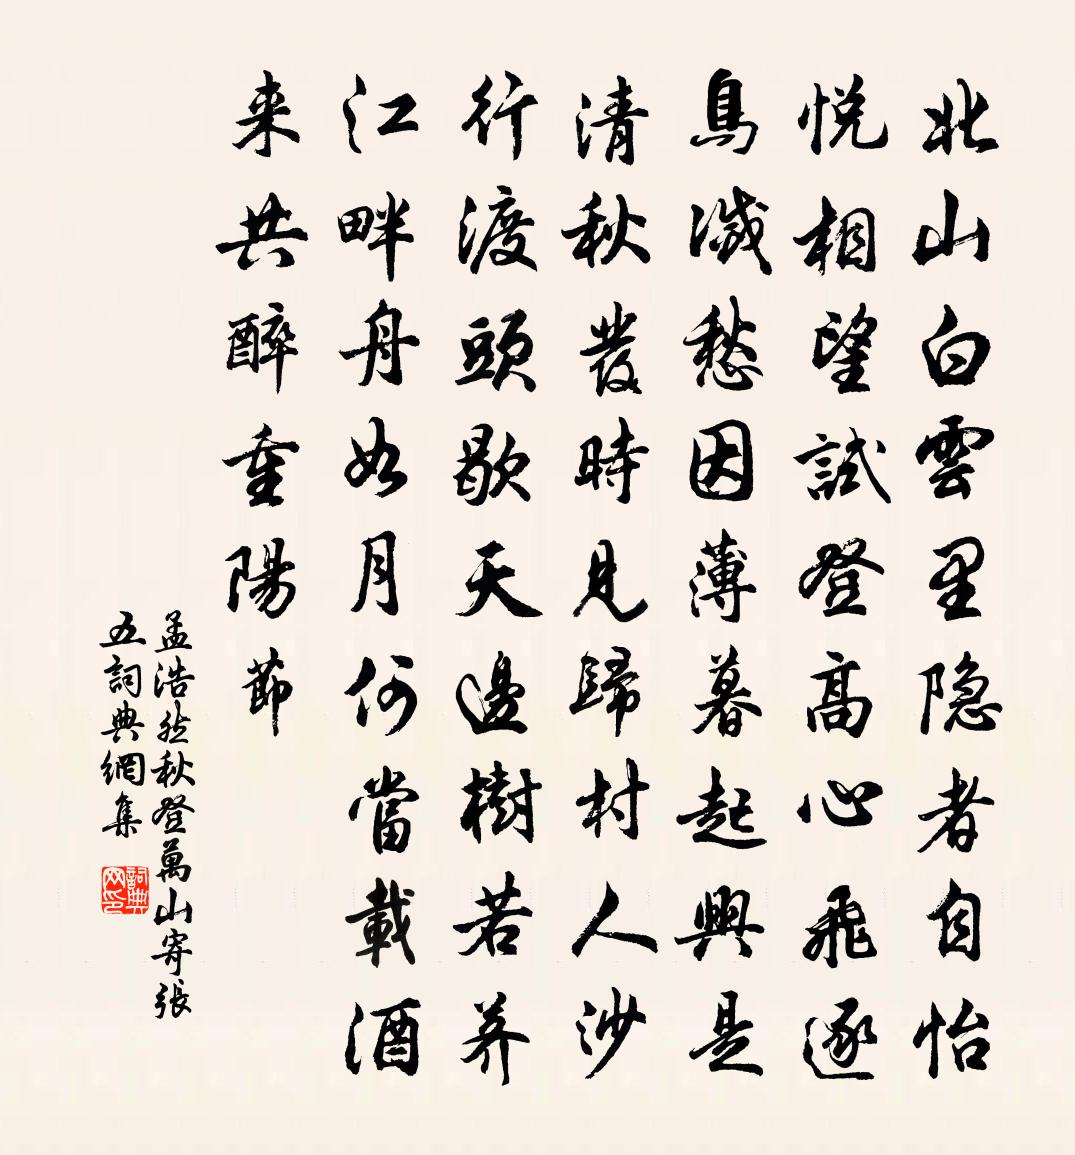 北山白雲里隐者自怡
悦相望試登髙心飛逐
鳥滅愁因薄暮起興是
清秋發時見歸村人沙
行渡頭歇天邊樹若荠
江畔舟如月何當載酒
来共醉重陽節
孟浩然秋登萬山寄張
五詞典網集
詞典网印